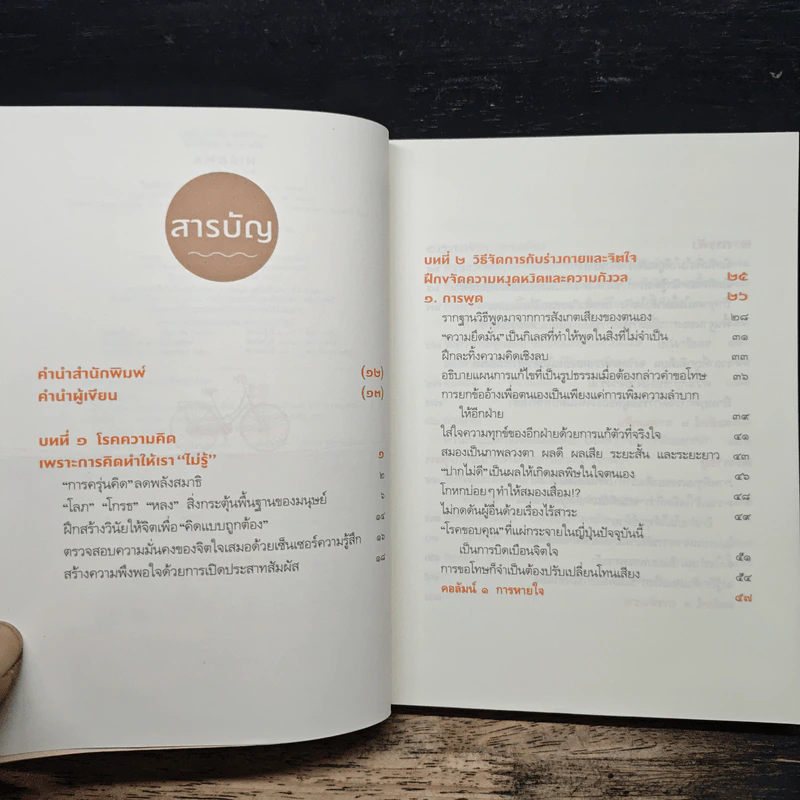 สารบัญ
คำนำสำนักพิมพ์ (๑๒)
คำนำผู้เขียน (๑๓)
บทที่ ๑ โรคความคิด
เพราะการคิดทำให้เรา “ไม่รู้” ๑
“การครุ่นคิด” ลดพลังสมาธิ ๒
“โลภ” “โกรธ” “หลง” สิ่งกระตุ้นพื้นฐานของมนุษย์ ๖
ฝึกสร้างวินัยให้จิตเพื่อ “คิดแบบถูกต้อง” ๑๔
ตรวจสอบความมั่นคงของจิตใจเสมอด้วยเซ็นเซอร์ความรู้สึก ๑๖
สร้างความพึงพอใจด้วยการเปิดประสาทสัมผัส ๑๘
บทที่ ๒ วิธีจัดการกับร่างกายและจิตใจ
ฝึกขจัดความหงุดหงิดและความกังวล ๒๕
๑. การพูด ๒๖
รากฐานวิธีพูดมาจากการสังเกตเสียงของตนเอง ๒๘
“ความยึดมั่น” เป็นกิเลสที่ทำให้พูดในสิ่งที่ไม่จำเป็น ๓๑
ฝึกละทิ้งความคิดเชิงลบ ๓๓
อธิบายแผนการแก้ไขที่เป็นรูปธรรมเมื่อต้องกล่าวคำขอโทษ ๓๖
การยกข้ออ้างเพื่อตนเองเป็นเพียงแค่การเพิ่มความลำบาก
ให้อีกฝ่าย ๓๙
ใส่ใจความทุกข์ของอีกฝ่ายด้วยการแก้ตัวที่จริงใจ ๔๑
สมองเป็นภาพลวงตา ผลดี ผลเสีย ระยะสั้น และระยะยาว ๔๓
“ปากไม่ดี” เป็นผลให้เกิดมลพิษในใจตนเอง ๔๖
โกหกบ่อยๆ ทำให้สมองเสื่อม!? ๔๘
ไม่กดดันผู้อื่นด้วยเรื่องไร้สาระ ๔๙
“โรคขอบคุณ” ที่แผ่กระจายในญี่ปุ่นปัจจุบันนี้
เป็นการบิดเบือนจิตใจ ๕๑
การขอโทษก็จำเป็นต้องปรับเปลี่ยนโทนเสียง ๕๔
คอลัมน์ ๑ การหายใจ ๕๗